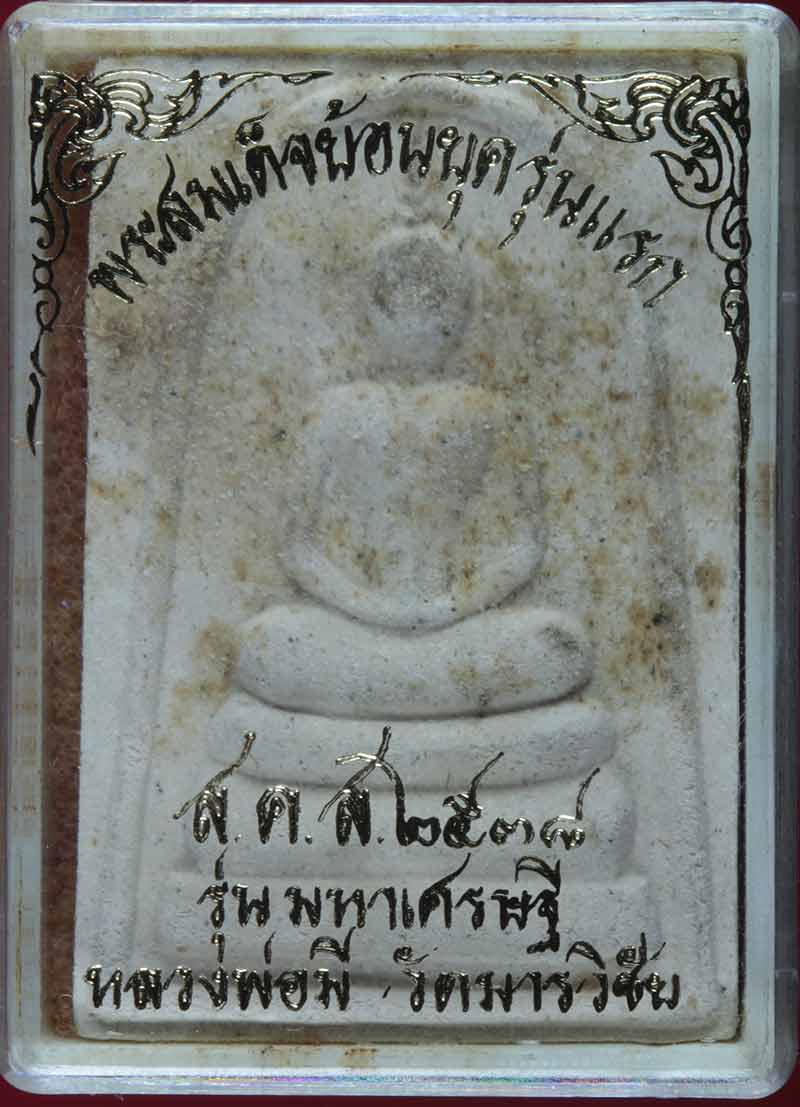 พระสมเด็จย้อนยุครุ่นแรก
ส.ค.ส.๒๕๓๘
รุ่นมหาเศรษฐี
หลวงพ่อมี วัดมารวิชัย